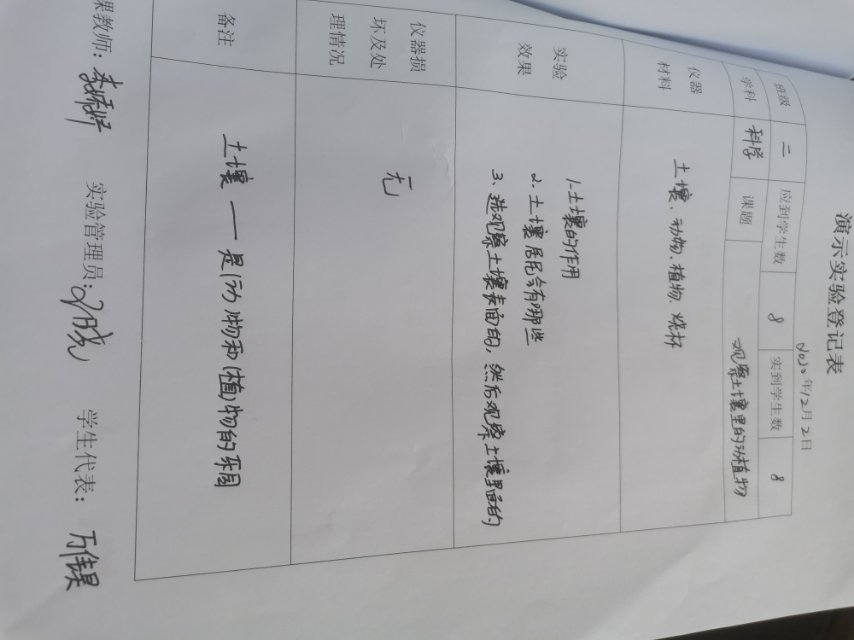 演示实验登记表
2020年12月2日
班级 二 应到学生数 8 实到学生数 8
学科 科学 课题 观察土壤里的动植物
仪器材料 土壤、动物、植物、烧杯
实验效果
1.土壤的作用
2.土壤居民会有哪些
3、选观察土壤表面的，然后观察土壤里面的
仪器损坏及处理情况 无
备注 土壤——是(动)物和(植)物的乐园
课教师： 实验管理员： 学生代表：